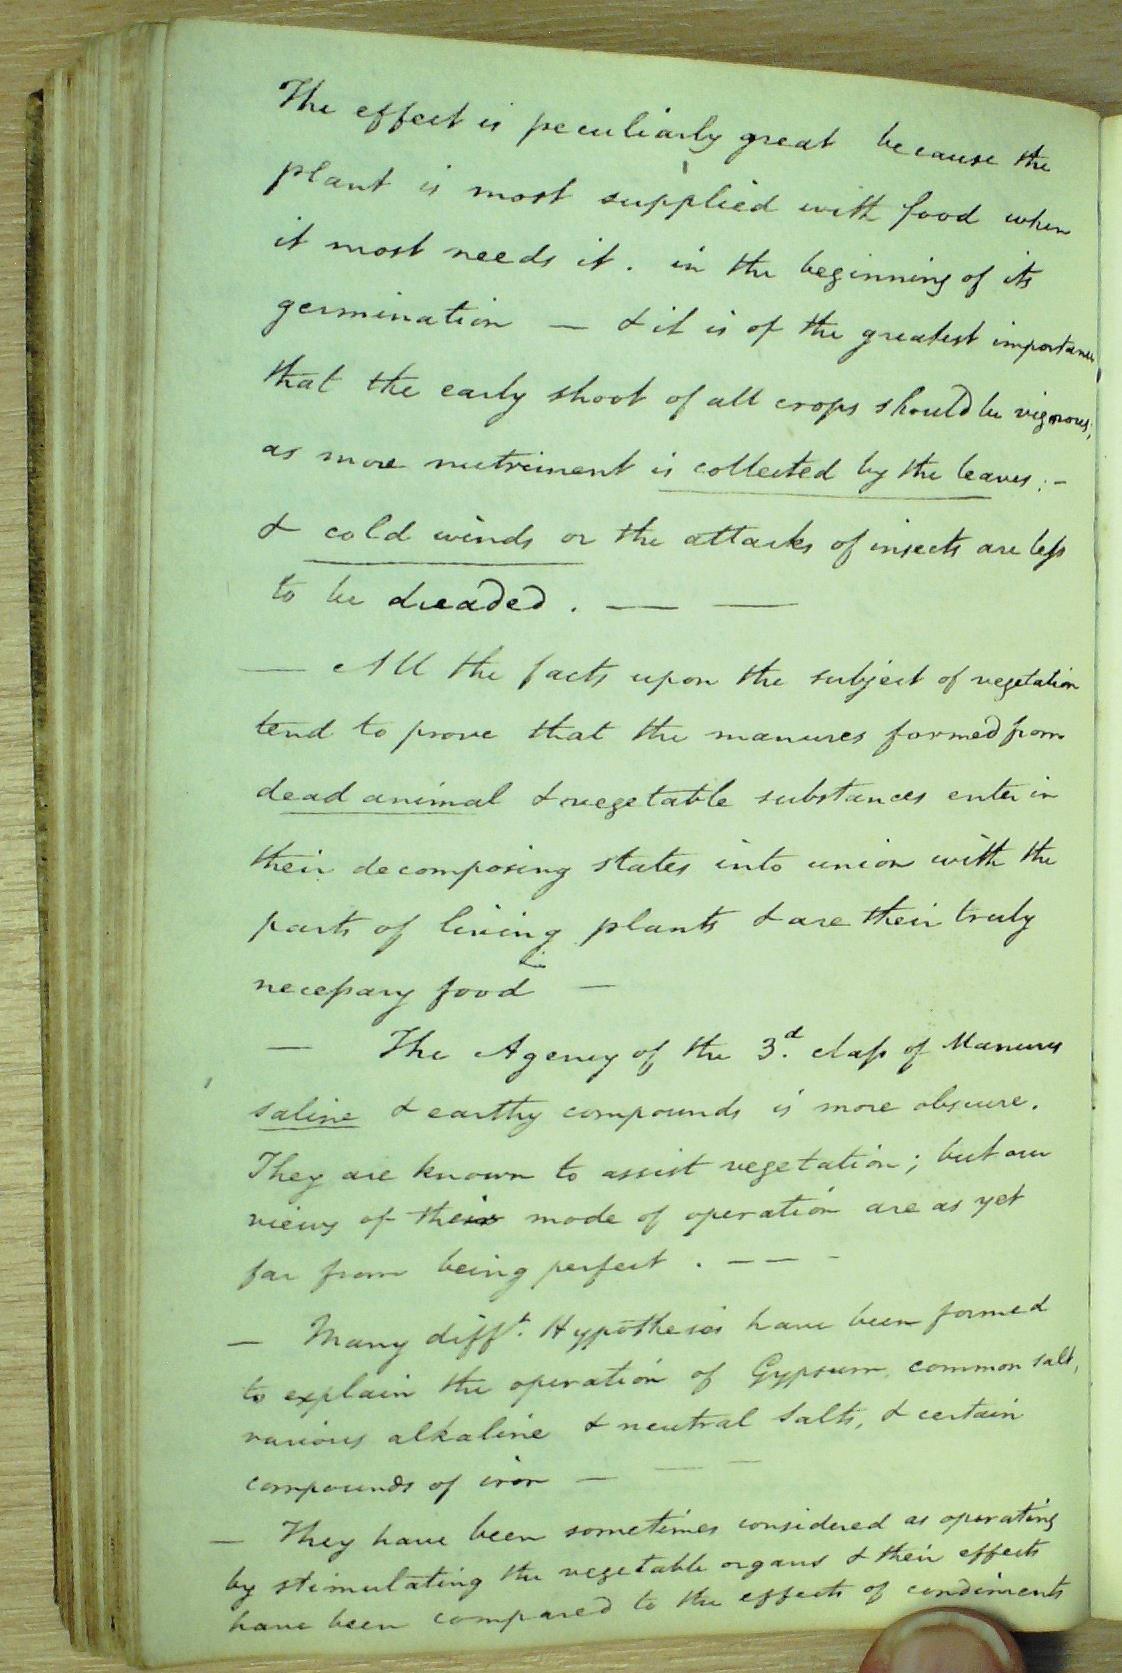 The effect is peculiarly great because the
plant is most supplied with food when
it most needs it. in the beginning of its
germination — & it is of the greatest importance
that the early shoot of all crops should be vigorous;
as more nutriment is collected by the leaves; -
& cold winds or the attacks of insects are less
to be dreaded. — —
— All the facts upon the subject of vegetation
tend to prove that the manures formed from
dead animal & vegetable substances enter in
their decomposing states into union with the
parts of living plants & are their truly
necessary food —
— The Agency of the 3.d class of Manures
saline & earthy compounds is more obscure.
They are known to assist vegetation; but our
views of their mode of operation are as yet
far from being perfect. — — -
— Many difft. Hypotheses have been formed
to explain the operation of Gypsum, common salt,
various alkaline & neutral Salts, & certain
compounds of iron — — —
— They have been sometimes considered as operating
by stimulating the vegetable organs & their effects
have been compared to the effects of condiments